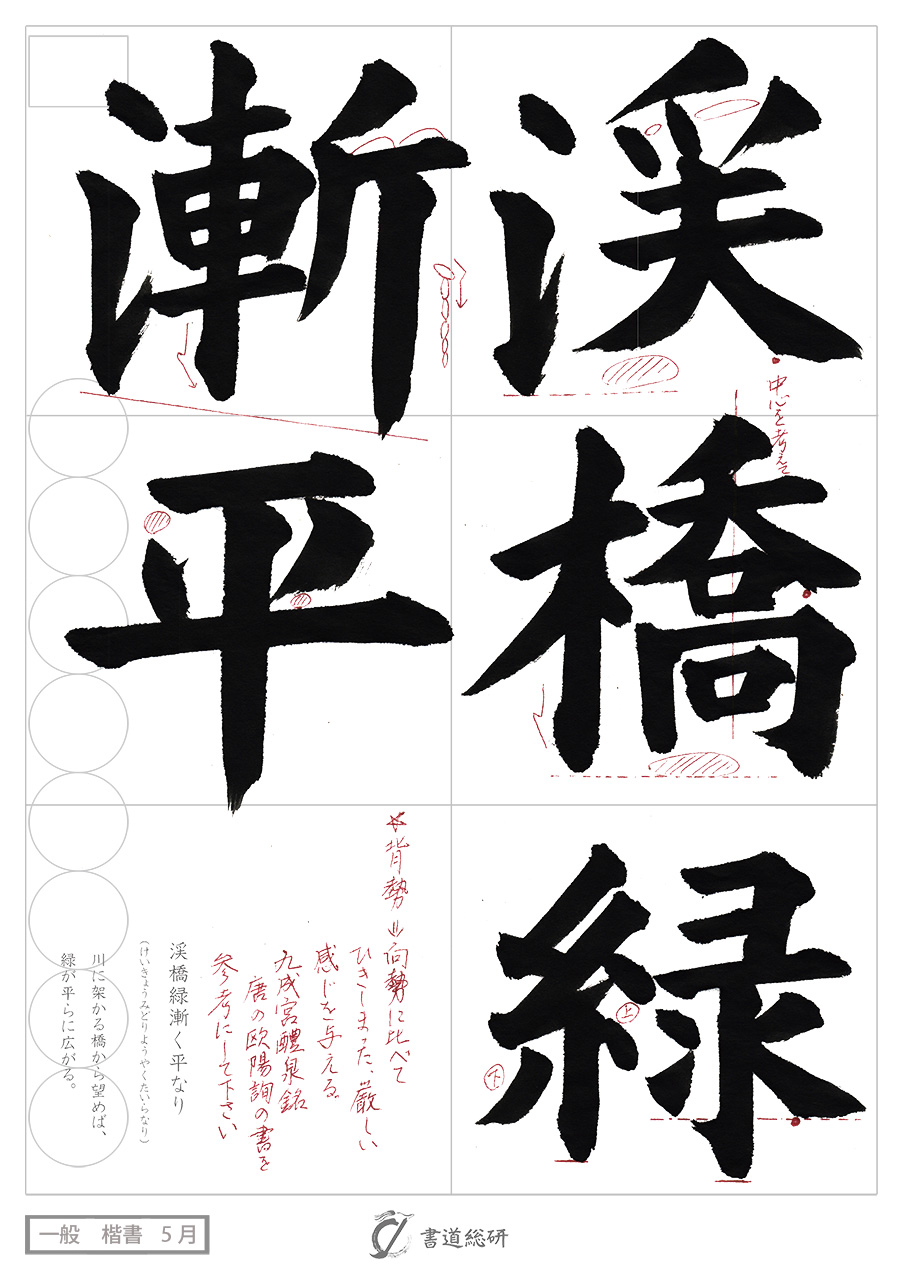 渓橋緑
漸平
中心を考えて
上
下
☆背勢⇒向勢に比べて
ひきしまった、厳しい
感じを与える。
九成宮醴泉銘
唐の欧陽詢の書を
参考にして下さい
渓橋緑漸く平なり
(けいきょうみどりようやくたいらなり)
川に架かる橋から望めば、
緑が平らに広がる。
一般 楷書 5月
書道総研